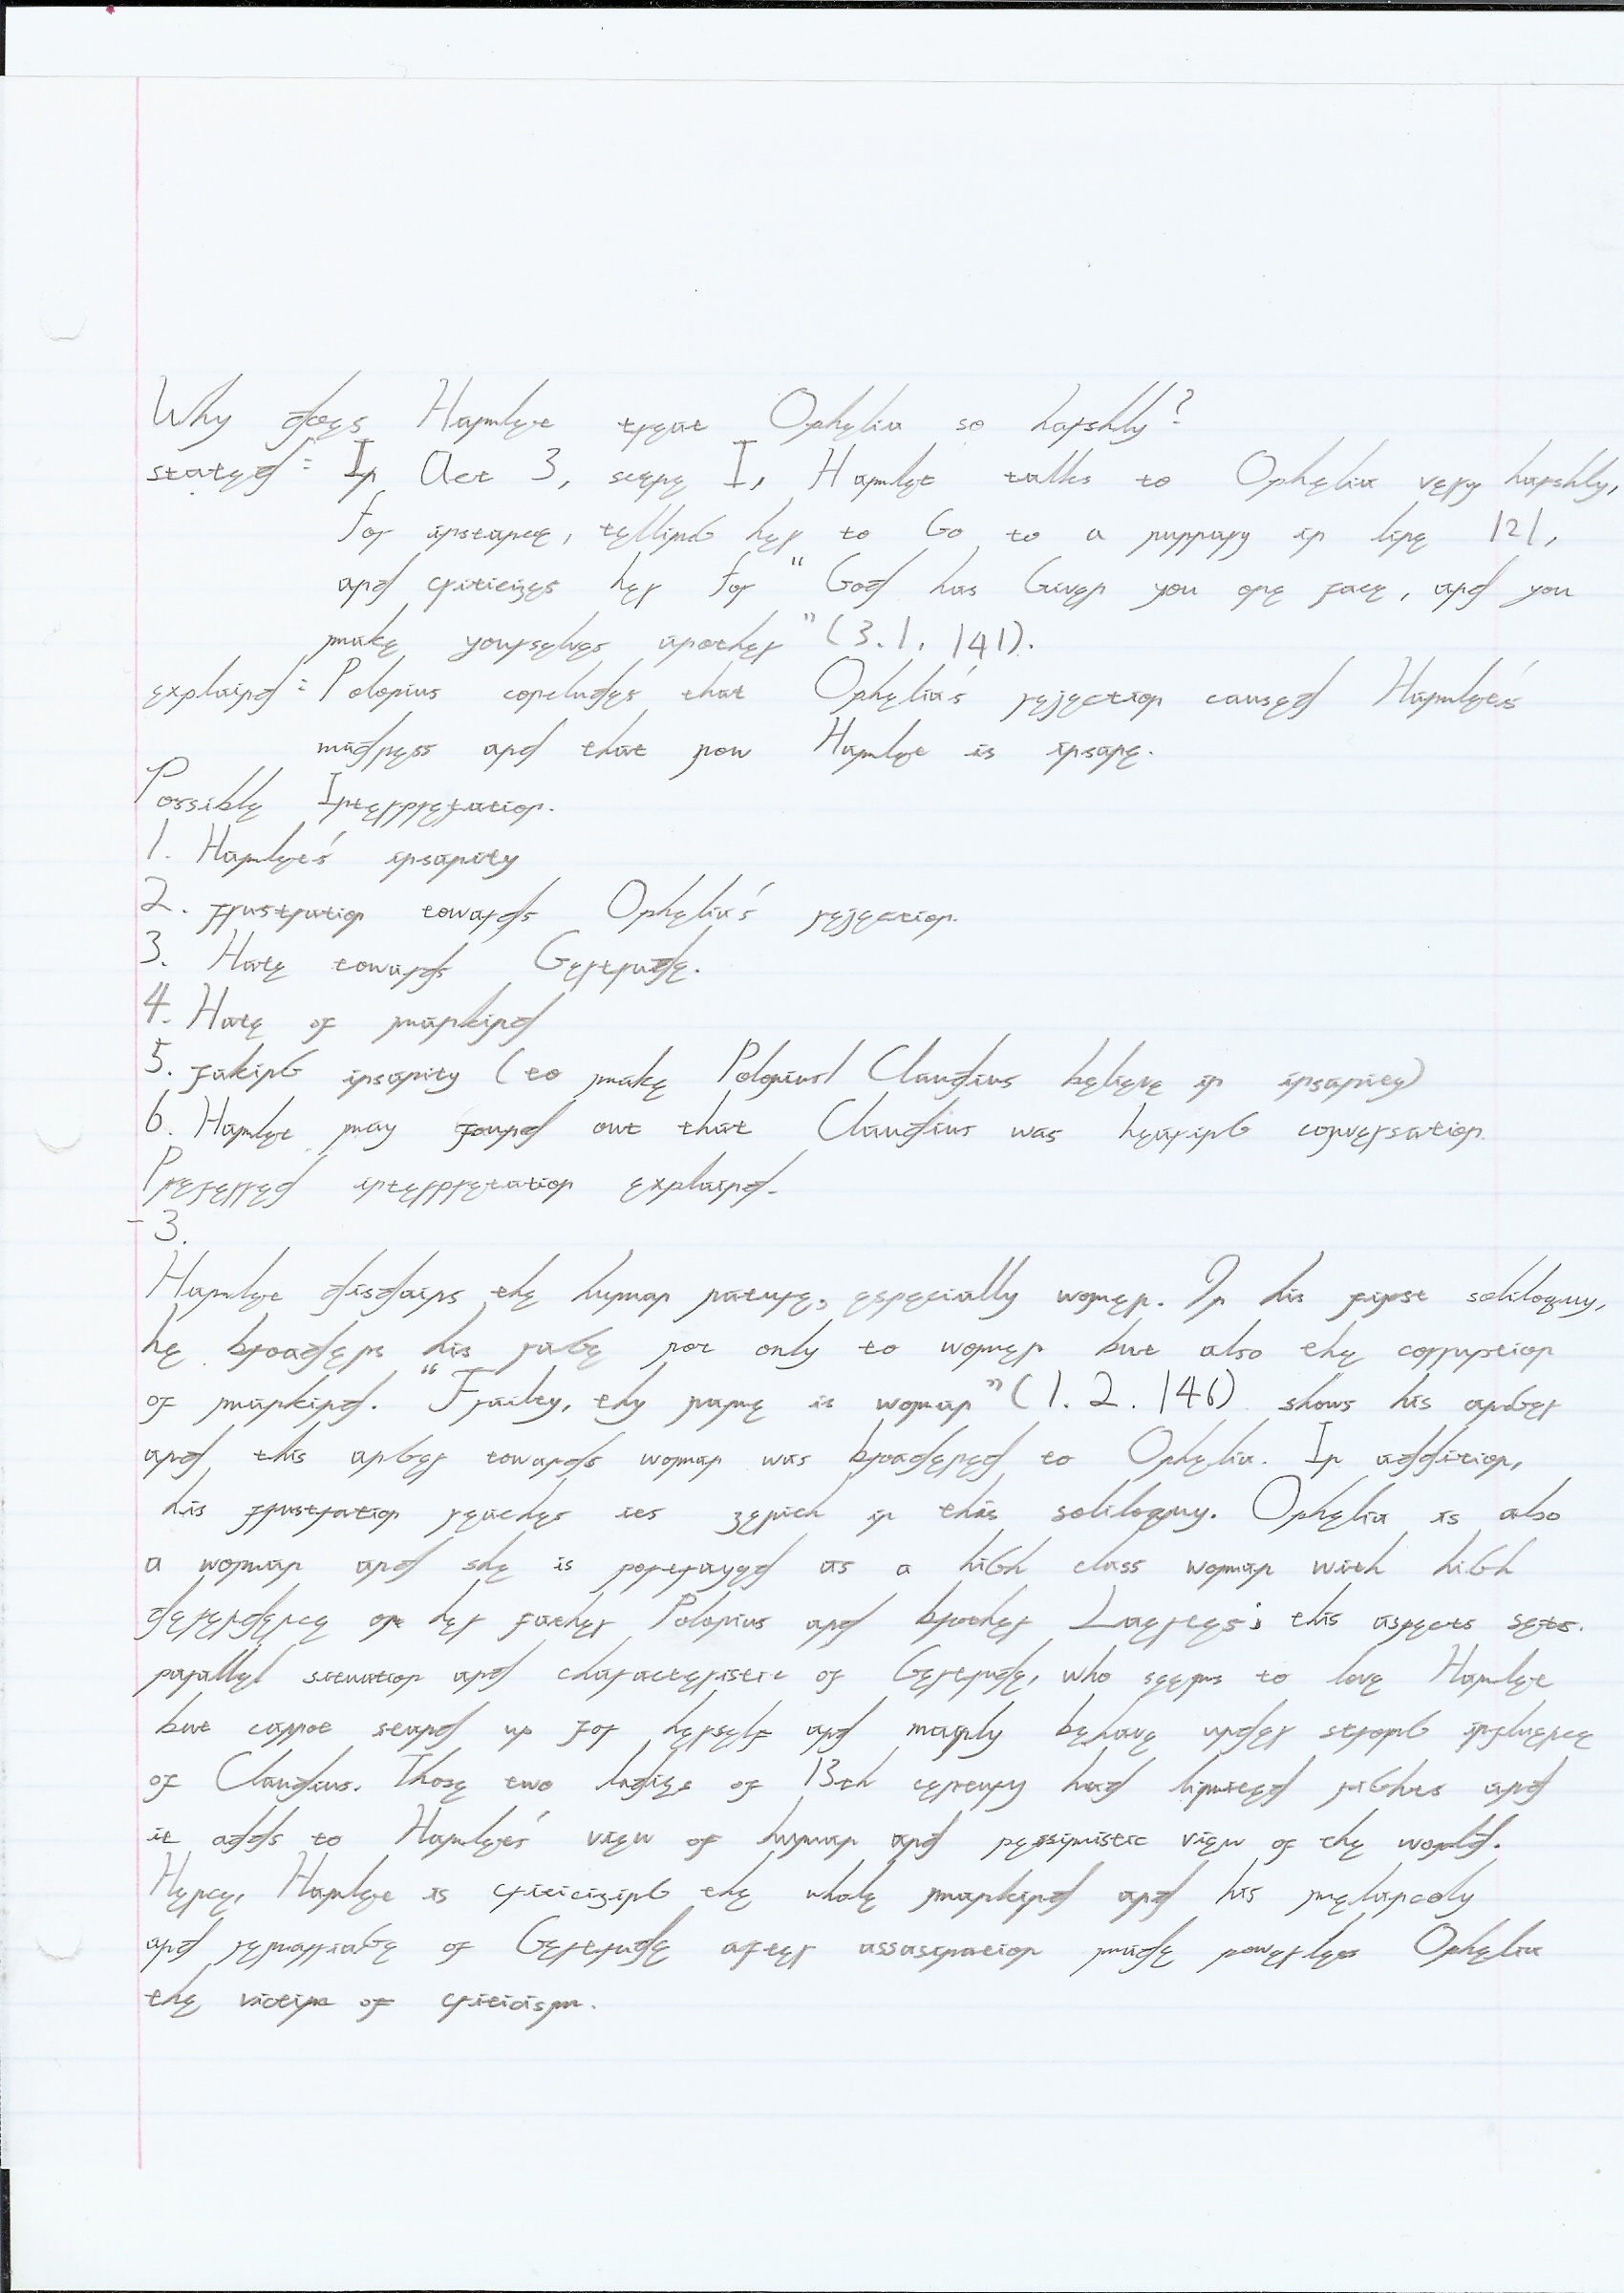 Why does Hamlet treat Ophelia so harshly?
stated: In Act 3, scene I, Hamlet talks to Ophelia very harshly,
for instance, telling her to Go to a nunnary in line 121,
and criticizes her for "God has Given you one face, and you
make yourselves another" (3.1.141).
explaind: Polonius concludes that Ophelia's rejection caused Hamlet's
madness and that now Hamlet is insane.
Possible Interpretation.
1. Hamlet's insanity
2. frustration towards Ophelia's rejection.
3. Hate towards Gertrude.
4. Hate of mankind
5. fakinG insanity (to make Polonius/Claudius believe in insanity)
6. Hamlet may found out that Claudius was hearinG conversation
Preferred interpretation explaind.
- 3.
Hamlet disdains the human nature, especially women. In his first soliloquy,
he broadens his raGe not only to women but also the corruption
of mankind. "Frailty, thy name is woman" (1.2.146) shows his anGer
and this anGer towards woman was broadened to Ophelia. In addition,
his frustration reaches its zenith in this soliloquy. Ophelia is also
a woman and she is portrayed as a hiGh class woman with hiGh
dependence on her father Polonius and brother Laertes; this aspects sets
parallel situation and characteristic of Gertrude, who seems to love Hamlet
but cannot stand up for herself and mainly behave under stronG influence
of Claudius. Those two ladies of 13th century had limited riGhts and
it adds to Hamlet's view of human and pessimistic view of the world.
Hence, Hamlet is criticizinG the whole mankind and his melancoly
and remarriaGe of Gertrude after assasination made powerless Ophelia
the victim of criticism.